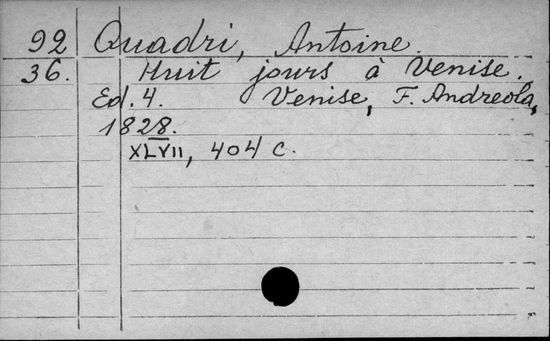 92 Quadri, Antoine.
36. Huit jours à Venise.
Ed. 4. Venise, F. Andreola,
1828.
XLVII, 404 c.